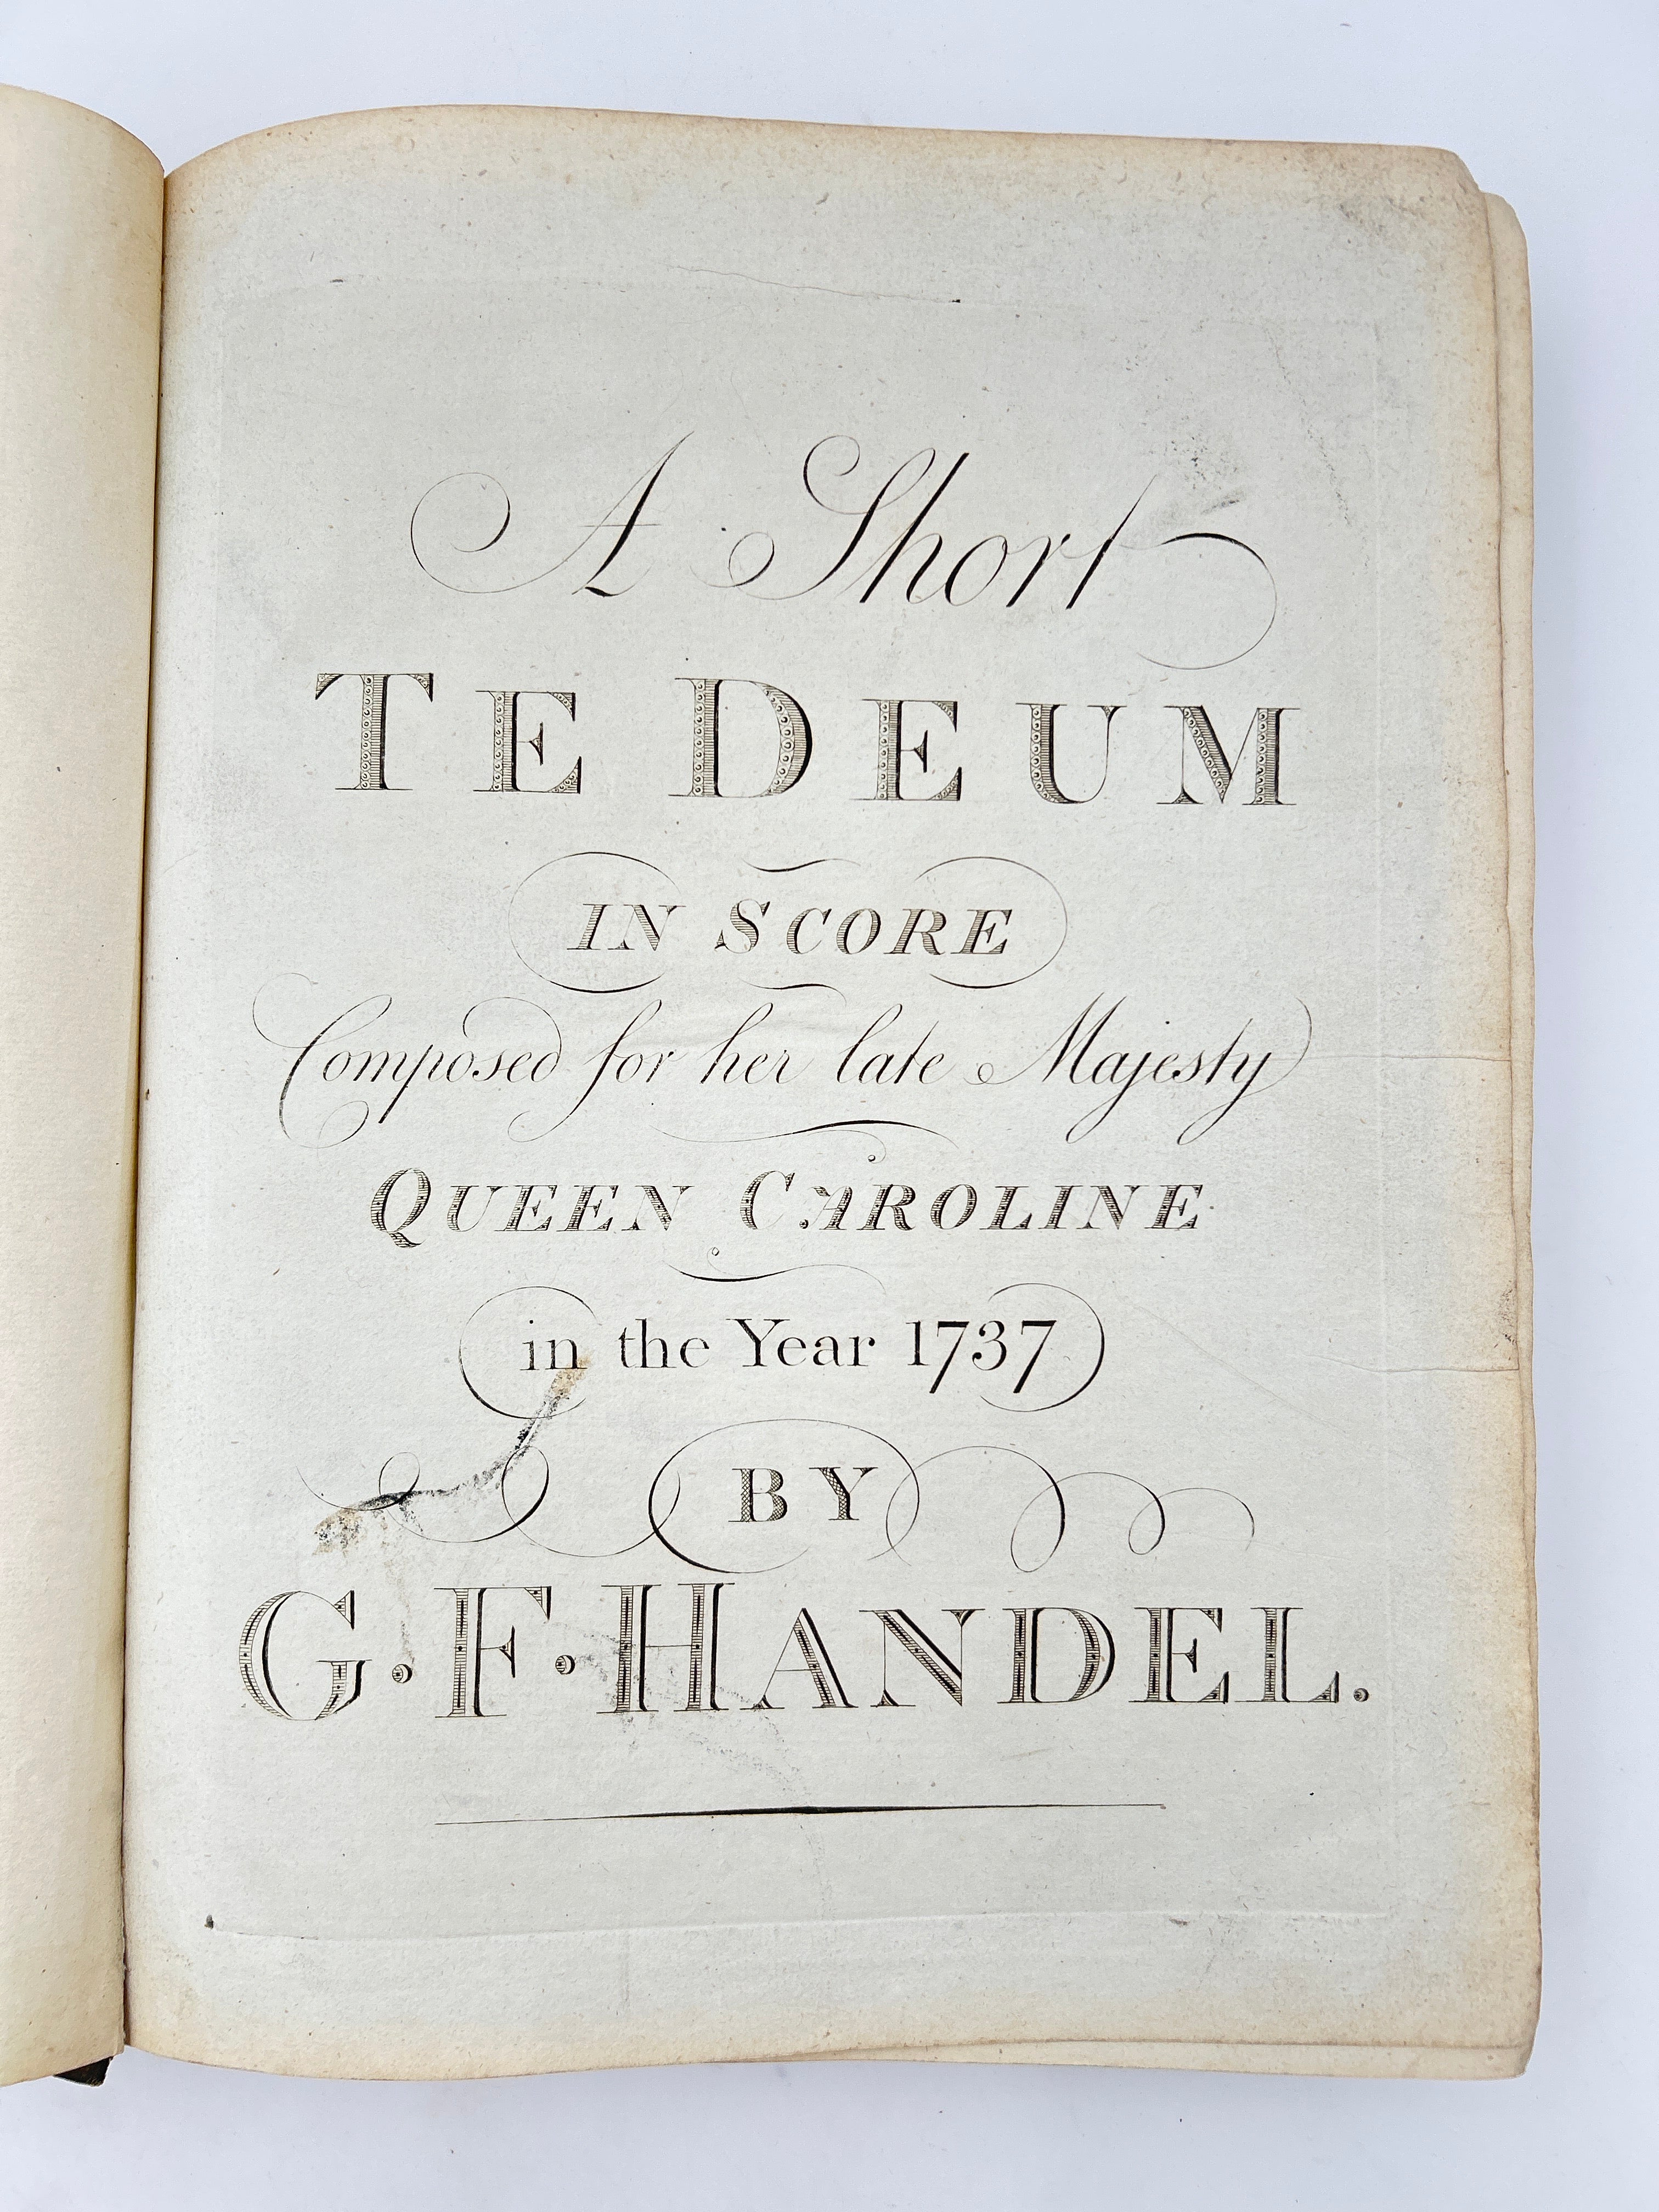 A Short
TE DEUM
IN SCORE
Composed for her late Majesty
QUEEN CAROLINE
in the Year 1737
BY
G. F. HANDEL.